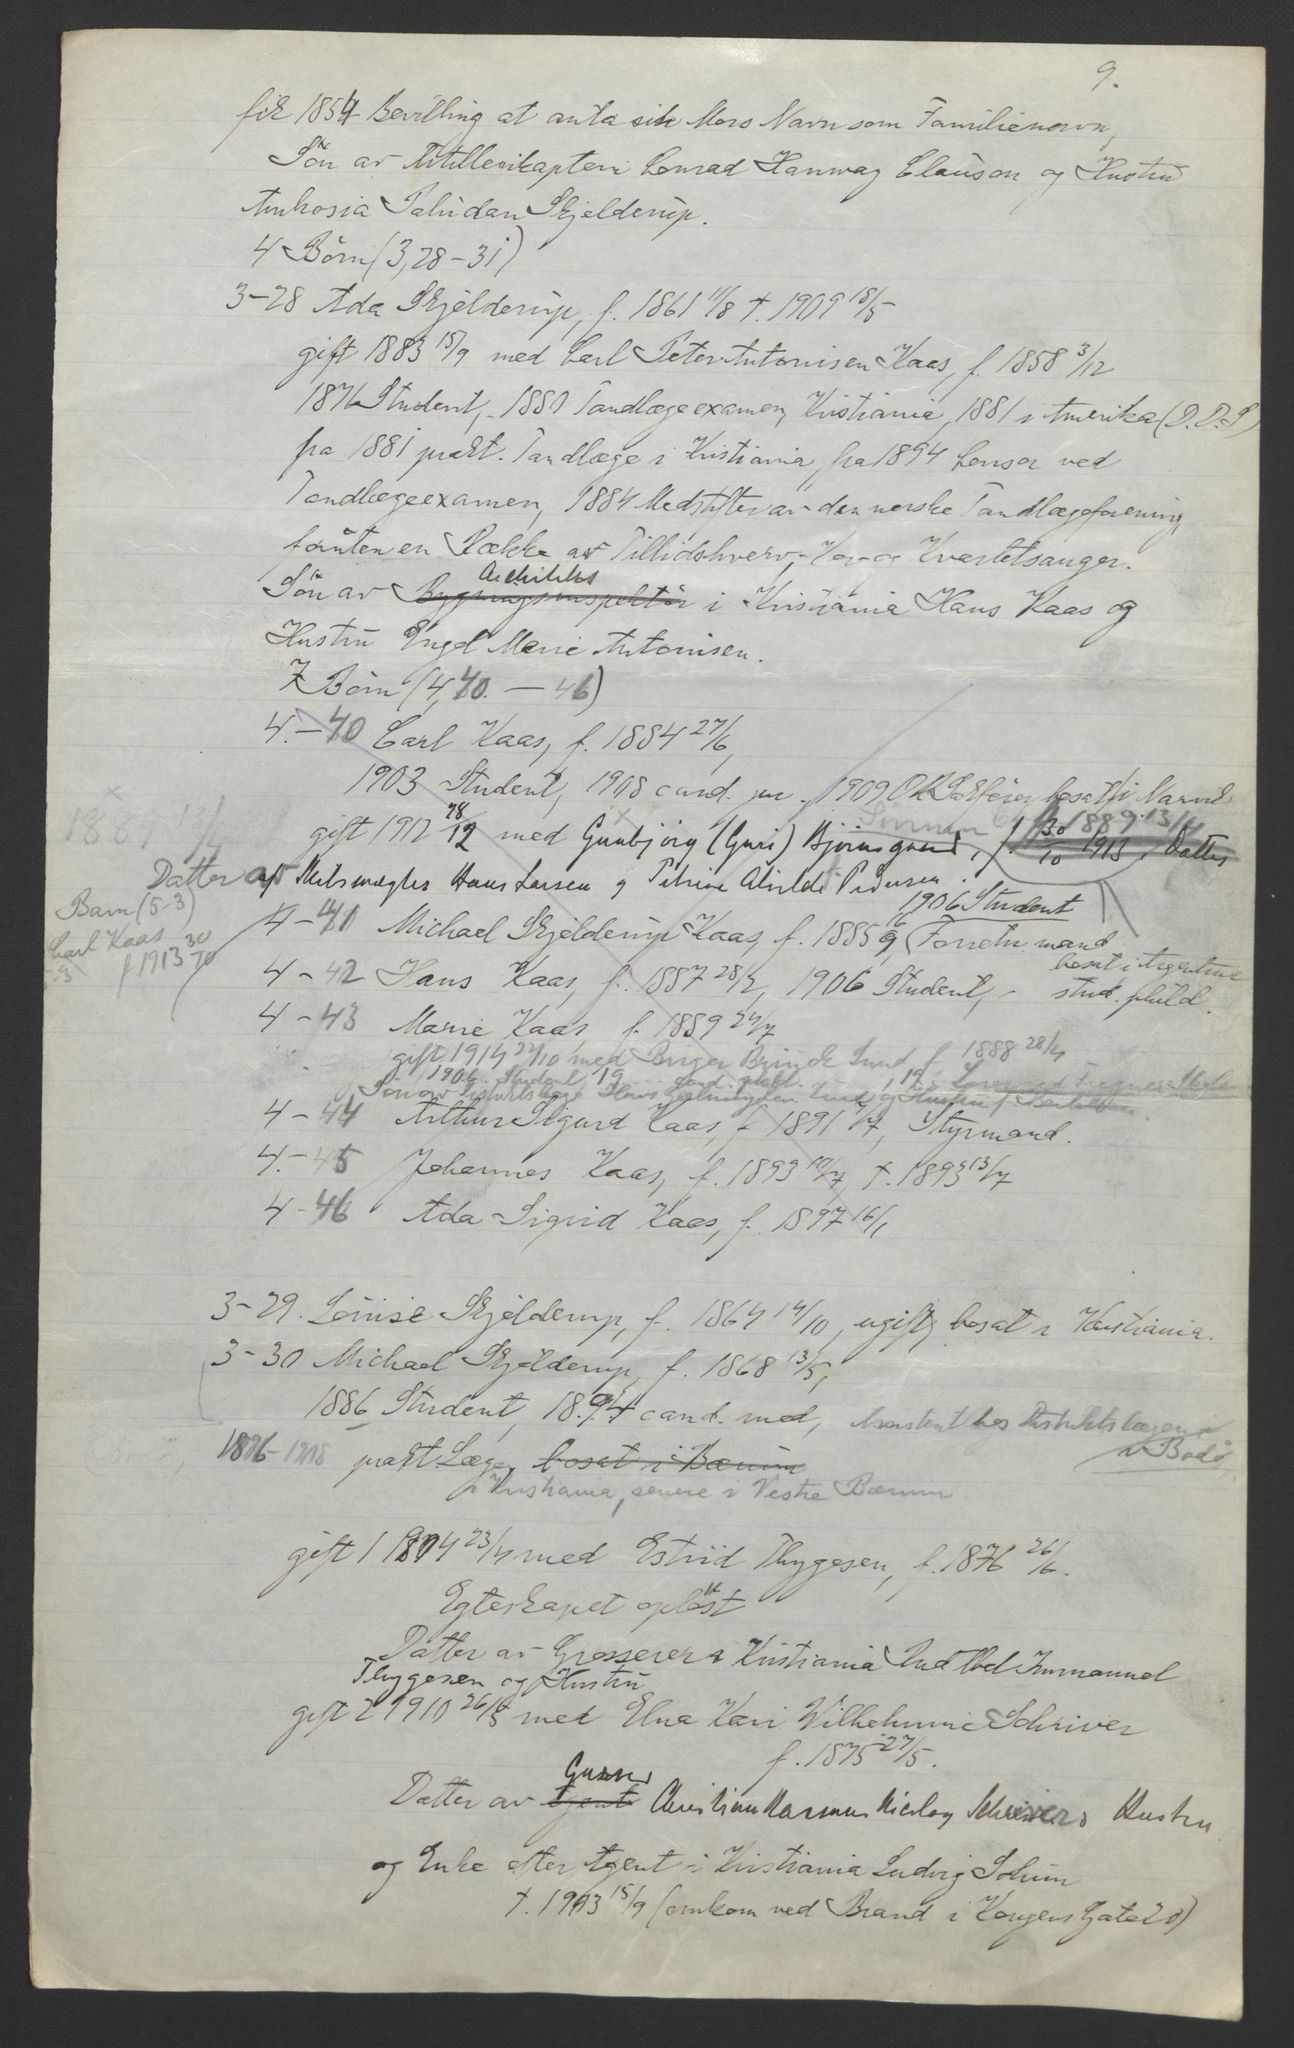 9.
fik 1854 Bevilling at anta sin Mors Navn som Familienavn,
Søn av Artillerikaptein Conrad Hanway Clauson og Hustru
Ambrosia Paludan Skjelderup.
4 Børn (3,28-31)
3-28 Ada Skjelderup, f. 1861 11/8 †. 1909 18/5
gift 1883 15/9 med Carl Peter Antonisen Kaas, f. 1858 3/12
1876 Student, 1880 Tandlægeexamen, Kristiania, 1881 i Amerika (D.D.S)
fra 1881 prakt. Tandlæge i Kristiania, fra 1894 Censor ved
Tandlægeexamen, 1884 Medstifter av den norske Tandlægeforening,
foruten en Række av Tillidshverv, Kor- og Kvartetsanger.
Arkitekt
Søn av Bygningsinspektør i Kristiania Hans Kaas og
Hustru Engel Marie Antonisen.
7 Børn (4,40. - 46)
4.-40 Carl Kaas, f. 1884 27/6,
1903 Student, 1908 cand. jur. 1909 bosat i Narvik
1889 13/4
gift 1912 28/12 med Gunbjörg (Guri) f. 30/10 1913, Datter
Datter af Hans Larsen og Petrine Pedersen.
Barn (5-3)
Carl Kaas
f 1913 30/10
1906 Student
4-41 Michael Skjelderup Kaas, f. 1885 Forretn. mand
bosat i Argentina
4-42 Hans Kaas, f. 1887 28/2, 1906 Student, - stud. philol.
4-43 Marie Kaas f. 1889 24/7
gift 1914 med Birger Brinck Lund f. 1888
1906 Student, 19 cand. philol.
Søn av Distriktslæge og Hustru f.
4-44 Arthur Sigurd Kaas, f 1891 Styrmand.
4.-45 Johannes Kaas, f. 1893 10/7, †. 1893 13/7
4-46 Ada Sigrid Kaas, f. 1897 16/1
3-29. Louise Skjelderup, f. 1864 14/10, ugift, bosat i Kristiania.
3-30 Michael Skjelderup, f. 1868 13/5,
1886 Student, 1894 cand. med, Assistent hos Distriktslægen
i Bodø
1896-1908 prakt Læge, bosat i Bærum
i Kristiania, senere i Vestre Bærum
gift 1 1894 23/4 med Estrid Thygesen, f. 1876 26/6.
Egteskapet opløst
Datter av Grosserer i Kristiania Immanuel
Thygesen og Hustru
gift 2 1910 26/8 med Elna Kari Wilhelmine Schriver
f. 1875 27/5.
Datter av Agent Christian Rasmus Nicolay Schriver Hustru
og Enke efter Agent i Kristiania Ludvig Solum
†. 1903 15/9 (omkom ved Brand i Kongens Gate 20)